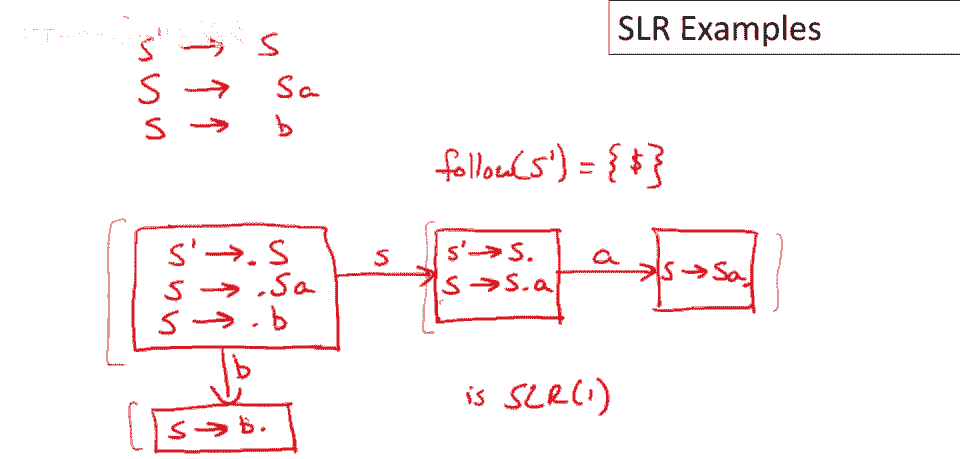 SLR Examples
S' → S
S → Sa
S → b
follow(S') = {$}
S' → .S
S → .Sa
S → .b
s
S' → S.
S → S.a
a
S → Sa.
b
S → b.
is SLR(1)